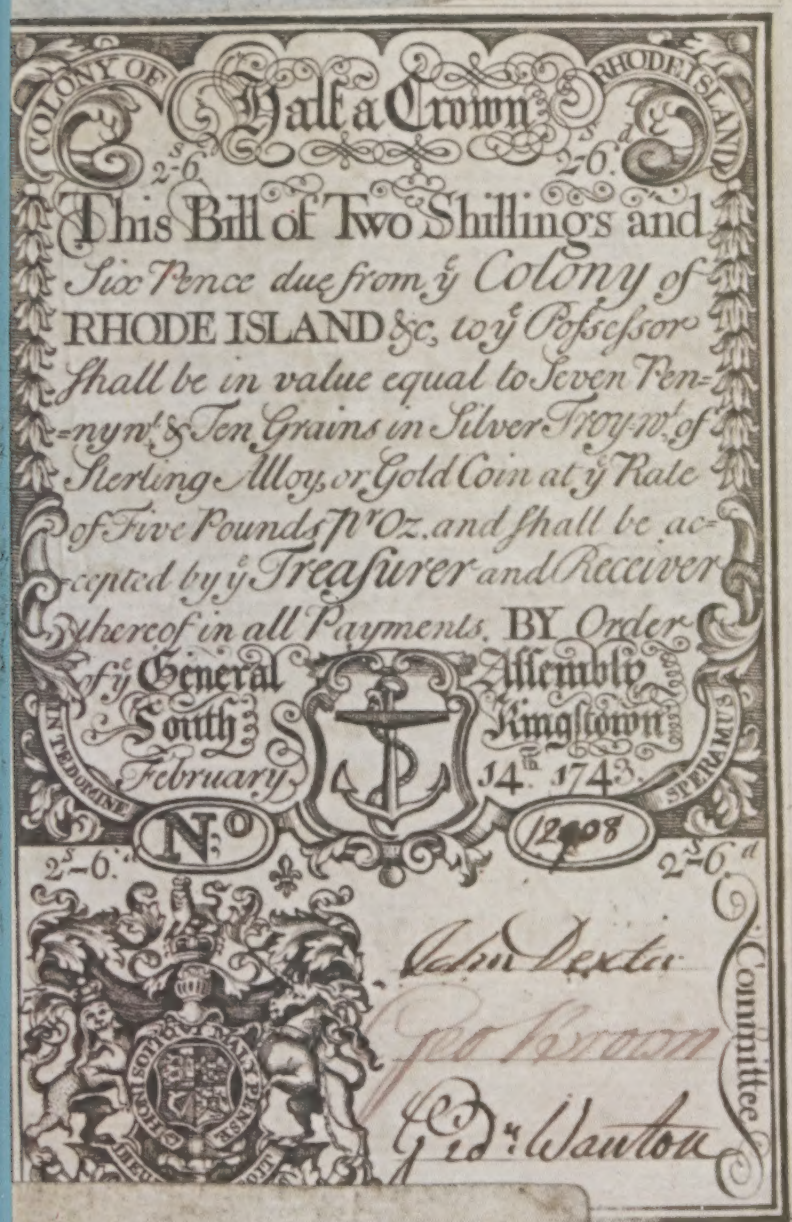 COLONY OF RHODE ISLAND
Half a Crown
2ˢ-6. 2ˢ-6.ᵈ
This Bill of Two Shillings and
Six Pence due from yͤ Colony of
RHODE ISLAND &c, to yͤ Poſseſsor
ſhall be in value equal to Seven Pen=
=nywᵗ. & Ten Grains in Silver Troy-wᵗ. of
Sterling Alloy, or Gold Coin at yͤ Rate
of Five Pounds pʳ Oz. and ſhall be ac=
cepted by yͤ Treaſurer and Receiver
thereof in all Payments. BY Order
of yͤ General Aſſembly
South Kingſtown
February 14ᵗʰ. 1743.
IN TE DOMINE SPERAMUS
N.º 12908
2ˢ-6.ᵈ 2ˢ-6.ᵈ
John Dexter
Geo Brown
Gidⁿ. Wanton
Committee
HONI SOIT QUI MAL Y PENSE
DIEU